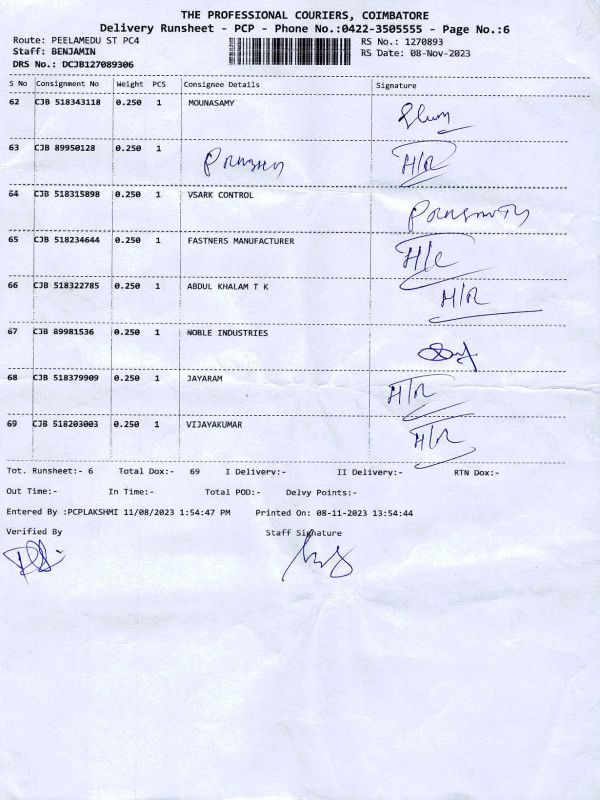 THE PROFESSIONAL COURIERS, COIMBATORE
Delivery Runsheet - PCP - Phone No.:0422-3505555 - Page No.:6
Route: PEELAMEDU ST PC4 RS No.: 1270893
Staff: BENJAMIN RS Date: 08-Nov-2023
DRS No.: DCJB127089306
S No Consignment No Weight PCS Consignee Details Signature
62 CJB 518343118 0.250 1 MOUNASAMY
63 CJB 89950128 0.250 1 H/R
64 CJB 518315898 0.250 1 VSARK CONTROL
65 CJB 518234644 0.250 1 FASTNERS MANUFACTURER H/C
66 CJB 518322785 0.250 1 ABDUL KHALAM T K H/R
67 CJB 89981536 0.250 1 NOBLE INDUSTRIES
68 CJB 518379909 0.250 1 JAYARAM H/R
69 CJB 518203003 0.250 1 VIJAYAKUMAR H/R
Tot. Runsheet:- 6 Total Dox:- 69 I Delivery:- II Delivery:- RTN Dox:-
Out Time:- In Time:- Total POD:- Delvy Points:-
Entered By :PCPLAKSHMI 11/08/2023 1:54:47 PM Printed On: 08-11-2023 13:54:44
Verified By Staff Signature